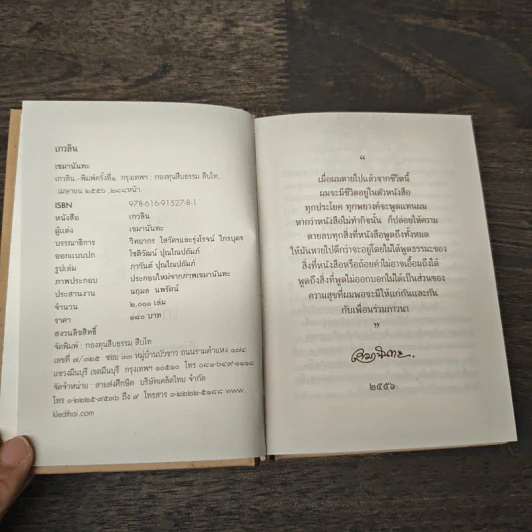 เกวลิน
เขมานันทะ
เกวลิน.-พิมพ์ครั้งที่๑ กรุงเทพฯ : กองทุนสืบธรรม สืบไท,
เมษายน ๒๕๕๖ ,๒๘๘หน้า.
ISBN 978-616-91527-8-1
หนังสือ เกวลิน
ผู้แต่ง เขมานันทะ
บรรณาธิการ วิทยากร โสวัตรและรุ่งโรจน์ ไกรบุตร
ออกแบบปก โชติวัฒน์ ปุณโณปถัมภ์
รูปเล่ม ภาวันต์ ปุณโณปถัมภ์
ภาพประกอบ ประกอบใหม่จากภาพเขมานันทะ
ประสานงาน นฤมล นพรัตน์
จำนวน ๒,๐๐๐ เล่ม
ราคา ๑๘๐ บาท
สงวนลิขสิทธิ์
จัดพิมพ์ : กองทุนสืบธรรม สืบไท
เลขที่ ๗/๓๒๕ ซอย ๓๓ หมู่บ้านบัวขาว ถนนรามคำแหง ๑๗๔
แขวงมีนบุรี เขตมีนบุรี กรุงเทพฯ ๑๐๕๑๐ โทร
จัดจำหน่าย : สายส่งศึกษิต บริษัทเคล็ดไทย จำกัด
โทร ๐-๒๒๒๕-๙๕๓๖ ถึง ๙ โทรสาร ๐-๒๒๒๒-๕๑๘๘ www.
kledthai.com
“
เมื่อผมตายไปแล้วจากชีวิตนี้
ผมจะมีชีวิตอยู่ในตัวหนังสือ
ทุกประโยค ทุกพยางค์จะพูดแทนผม
หากว่าหนังสือไม่ทำกิจนั้น ก็ปล่อยให้ความ
ตายลบทุกสิ่งที่หนังสือพูดถึงทั้งหมด
ให้มันหายไปดีกว่าจะอยู่โดยไม่ได้พูดธรรมะของ
สิ่งที่หนังสือหรือถ้อยคำไม่อาจเอื้อมถึงได้
พูดถึงสิ่งที่พูดไม่ออกบอกไม่ได้เป็นส่วนของ
ความสุขที่ผมพอจะมีให้แก่กันและกัน
กับเพื่อนร่วมภาวนา
”
เขมานันทะ.
๒๕๕๖